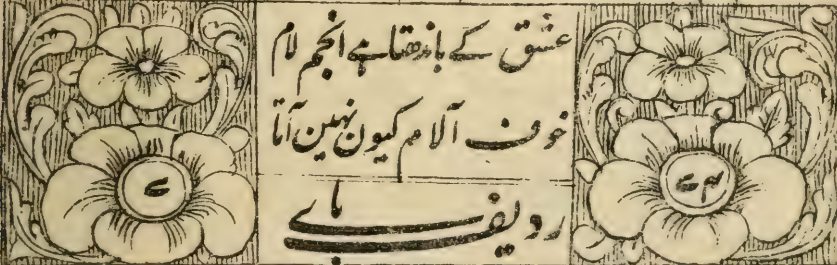 عشق کے باندھتا ہے انجم لام
خوف آلام کیون نہین آتا
ردیف باے